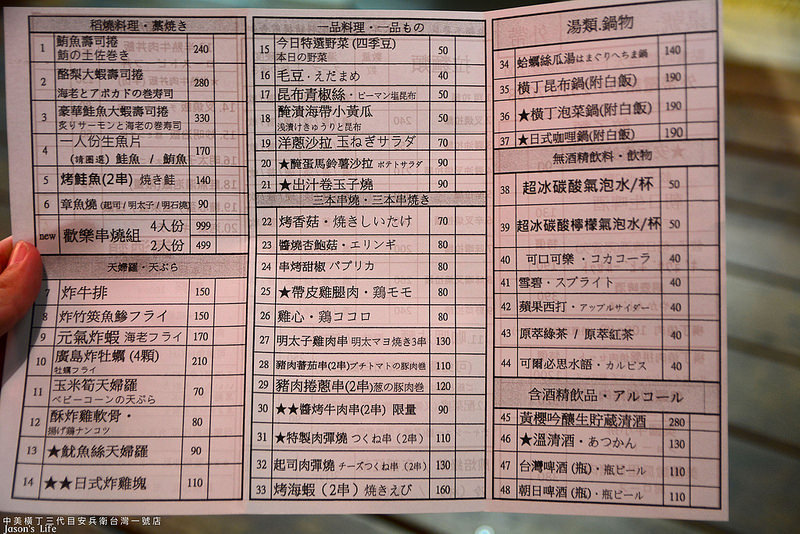 稻燒料理・藁焼き
1 鮪魚壽司捲 240
鮪の土佐巻き
2 酪梨大蝦壽司捲 280
海老とアボカドの巻寿司
3 豪華鮭魚大蝦壽司捲 330
炙りサーモンと海老の巻寿司
4 一人份生魚片 170
(請圈選) 鮭魚 / 鮪魚
5 烤鮭魚(2串) 焼き鮭 140
6 章魚燒(起司 / 明太子 / 明石燒) 90
new 歡樂串燒組 4人份 999
2人份 499
天婦羅・天ぷら
7 炸牛排 150
8 炸竹筴魚鯵フライ 150
9 元氣炸蝦 海老フライ 170
10 廣島炸牡蠣 (4顆) 210
牡蠣フライ
11 玉米筍天婦羅 70
ベビーコーンの天ぷら
12 酥炸雞軟骨・ 80
揚げ鶏ナンコツ
13 ★魷魚絲天婦羅 90
14 ★★日式炸雞塊 110
一品料理・一品もの
15 今日特選野菜 (四季豆) 50
本日の野菜
16 毛豆・えだまめ 40
17 昆布青椒絲・ピーマン塩昆布 50
18 醃漬海帶小黃瓜 50
浅漬けきゅうりと昆布
19 洋蔥沙拉 玉ねぎサラダ 70
20 ★醃蛋馬鈴薯沙拉 ポテトサラダ 90
21 ★出汁卷玉子燒 90
三本串燒・三本串焼き
22 烤香菇・焼きしいたけ 70
23 醬燒杏鮑菇・エリンギ 80
24 串烤甜椒 パプリカ 80
25 ★帶皮雞腿肉・鶏モモ 80
26 雞心・鶏ココロ 80
27 明太子雞肉串 明太マヨ焼き3串 130
28 豬肉蕃茄串(2串)プチトマトの豚肉巻 110
29 豬肉捲蔥串(2串)葱の豚肉巻 120
30 ★★醬烤牛肉串(2串) 限量 90
31 ★特製肉彈燒 つくね串 (2串) 110
32 起司肉彈燒 チーズつくね串 (2串) 130
33 烤海蝦 (2串) 焼きえび 160
湯類.鍋物
34 蛤蠣絲瓜湯はまぐりへちま鍋 140
35 橫丁昆布鍋(附白飯) 190
36 ★橫丁泡菜鍋(附白飯) 190
37 ★日式咖哩鍋(附白飯) 190
無酒精飲料・飲物
38 超冰碳酸氣泡水/杯 50
39 超冰碳酸檸檬氣泡水/杯 50
40 可口可樂・コカコーラ 40
41 雪碧・スプライト 40
42 蘋果西打・アップルサイダー 40
43 原萃綠茶 / 原萃紅茶 40
44 可爾必思水語・カルピス 40
含酒精飲品・アルコール
45 黃櫻吟釀生貯蔵清酒 280
46 ★溫清酒・あつかん 130
47 台灣啤酒 (瓶)・瓶ビール 110
48 朝日啤酒 (瓶)・瓶ビール 110
中美橫丁三代目安兵衛台灣一號店
Jason's Life